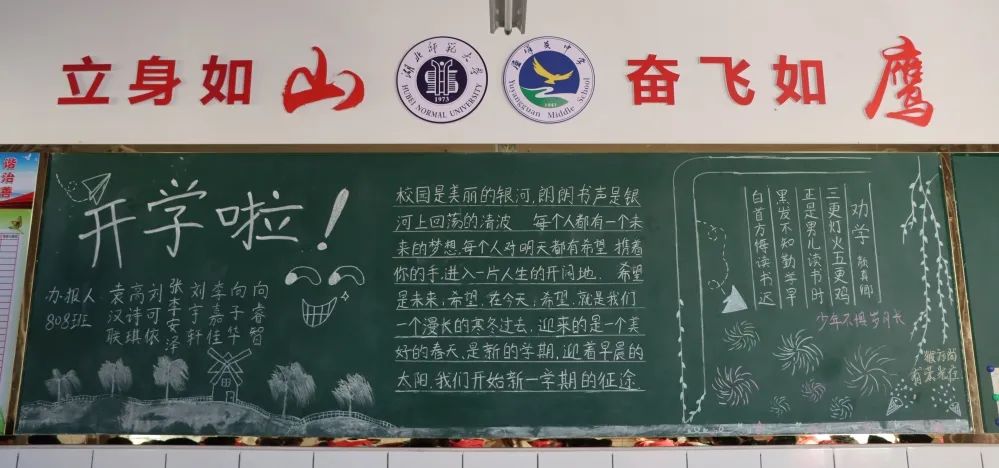 立身如山
湖北师范大学
HUBEI NORMAL UNIVERSITY
1973
Yuyangguan Middle School
奋飞如鹰
谐
治
善
开学啦！
办报人
808班
袁汉联
高诗琪
刘可依
张李安泽
刘宇轩
李嘉佳
向子华
向睿智
校园是美丽的银河,朗朗书声是银
河上回荡的清波 每个人都有一个未
来的梦想,每个人对明天都有希望 携着
你的手,进入一片人生的开阔地. 希望
是未来,希望,在今天,希望.就是我们
一个漫长的寒冬过去,迎来的是一个美
好的春天,是新的学期,迎着早晨的
太阳,我们开始新一学期的征途
劝学 颜真卿
三更灯火五更鸡
正是男儿读书时
黑发不知勤学早
白首方悔读书迟
少年不惧岁月长